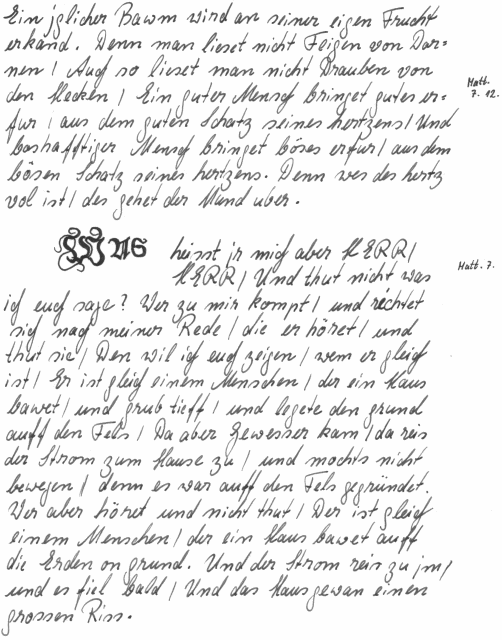 Ein jglicher Bawm wird an seiner eigen Frucht
erkand. Denn man lieset nicht Feigen von Dor=
nen / Auch so lieset man nicht Drauben von
den Hecken / Ein guter Mensch bringet gutes er=
fur / aus dem guten Schatz seines hertzens / Und
boshafftiger Mensch bringet böses erfur / aus dem
bösen Schatz seines hertzens. Denn wes des hertz
vol ist / des gehet der Mund uber.
Matt.
7. 12.
WAS heisst jr mich aber HERR /
HERR / Und thut nicht was
ich euch sage? Wer zu mir kompt / und rechtet
sich nach meiner Rede / die er höret / und
thut sie / Den wil ich euch zeigen / wem er gleich
ist / Er ist gleich einem Menschen / der ein Haus
bawet / und grub tieff / und legete den grund
auff den Fels / Da aber Gewesser kam / da reis
der Strom zum Hause zu / und mochts nicht
bewegen / denn es war auff den Fels gegründet.
Wer aber höret und nicht thut / Der ist gleich
einem Menschen / der ein Haus bawet auff
die Erden on grund. Und der Strom reis zu jm /
und es fiel bald / Und das Haus gewan einen
grossen Riss.
Matt. 7.